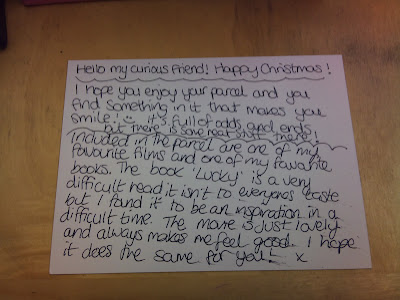 Hello my curious friend! Happy Christmas!
I hope you enjoy your parcel and you
find something in it that makes you
smile! it's full of odds and ends
but there is some neat stuff in there!
Included in the parcel are one of my
favourite films and one of my favourite
books. The book 'Lucky' is a very
difficult read, it isn't to everyones taste
but I found it to be an inspiration in a
difficult time. The movie is just lovely
and always makes me feel good. I hope
it does the same for you! x